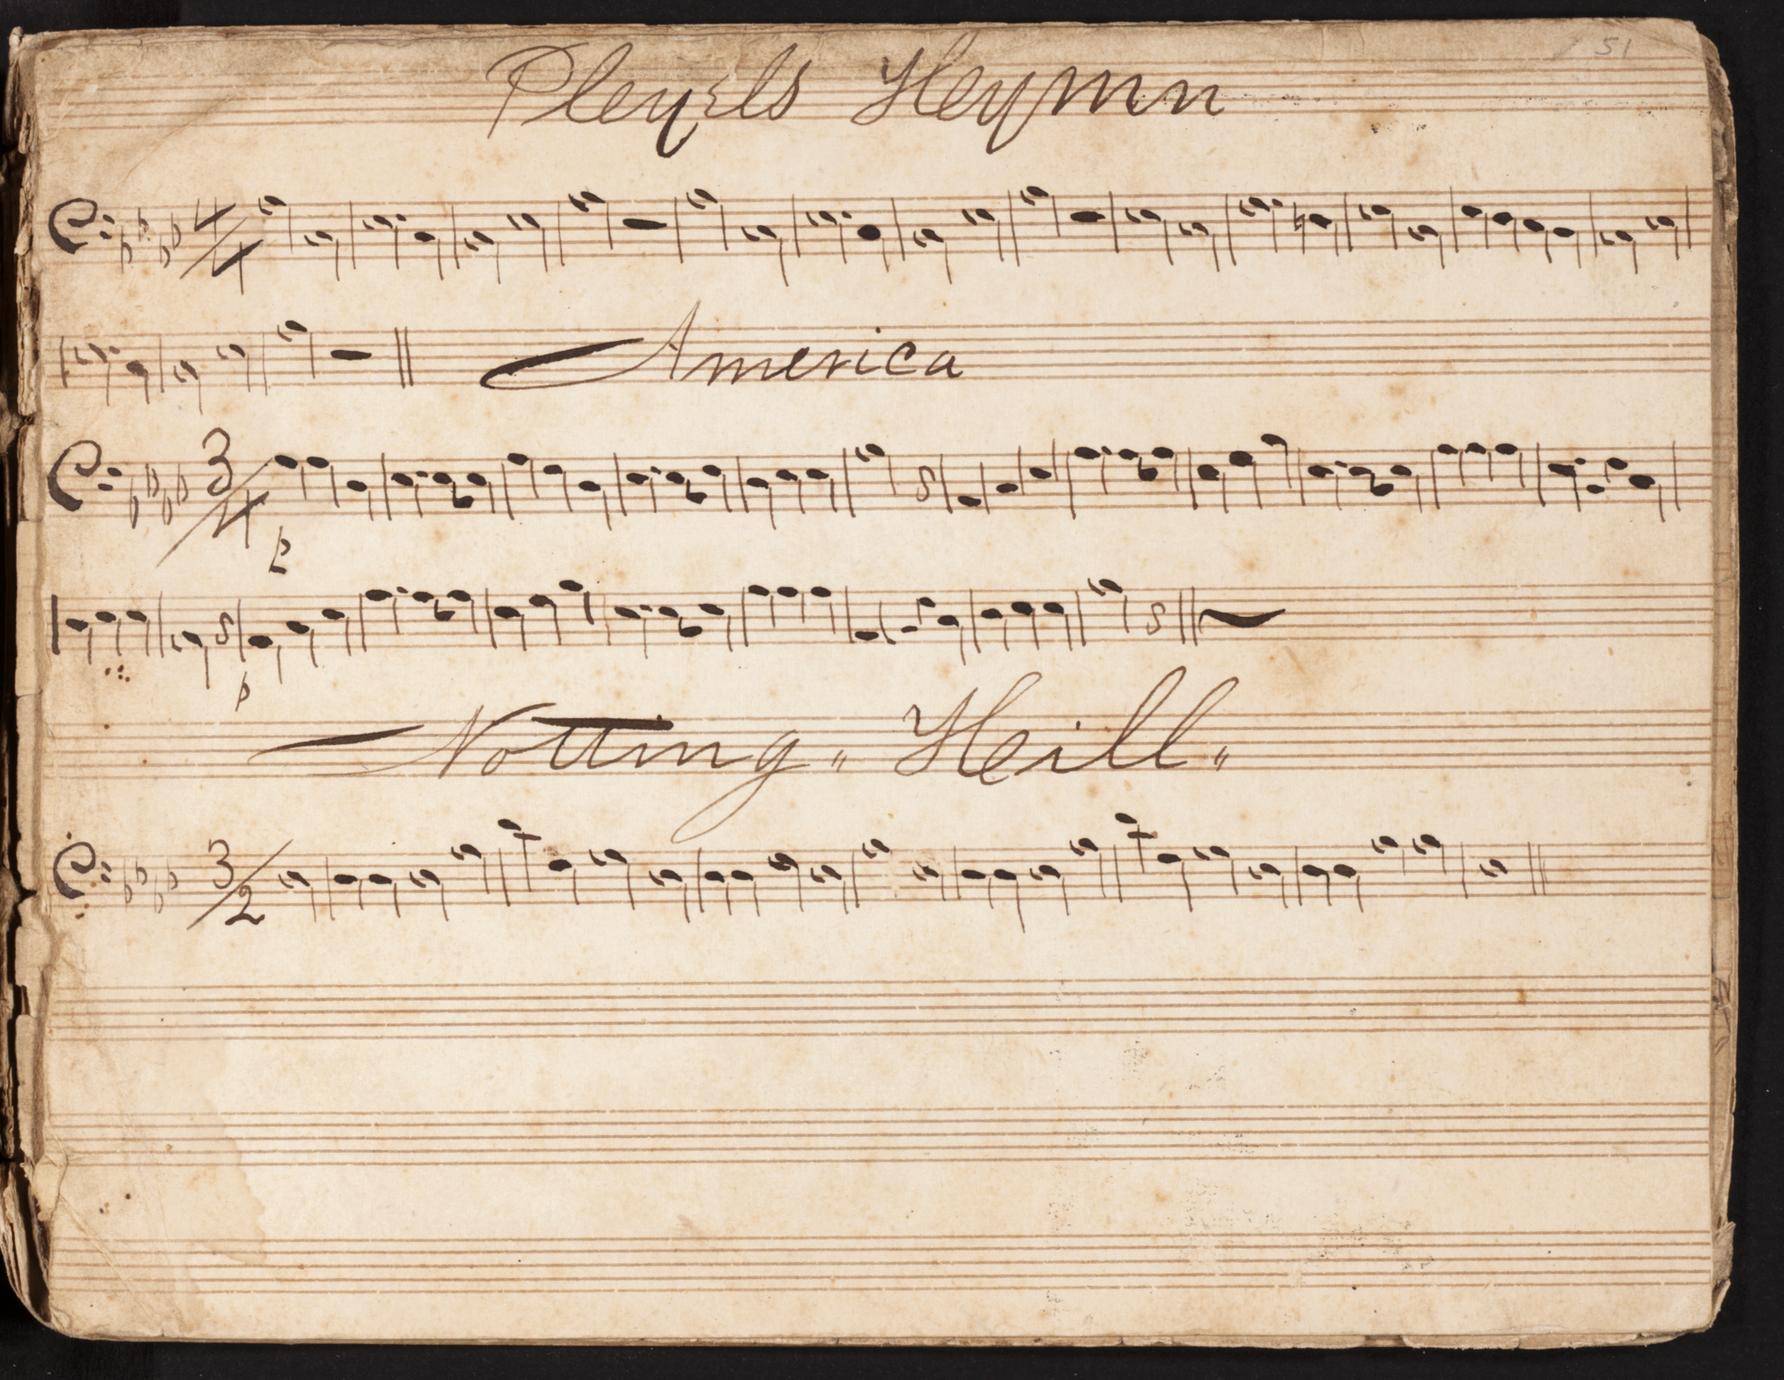 51
Pleyels Heymn
4/4
America
3/4
p
p
Notting " Heill "
3/2